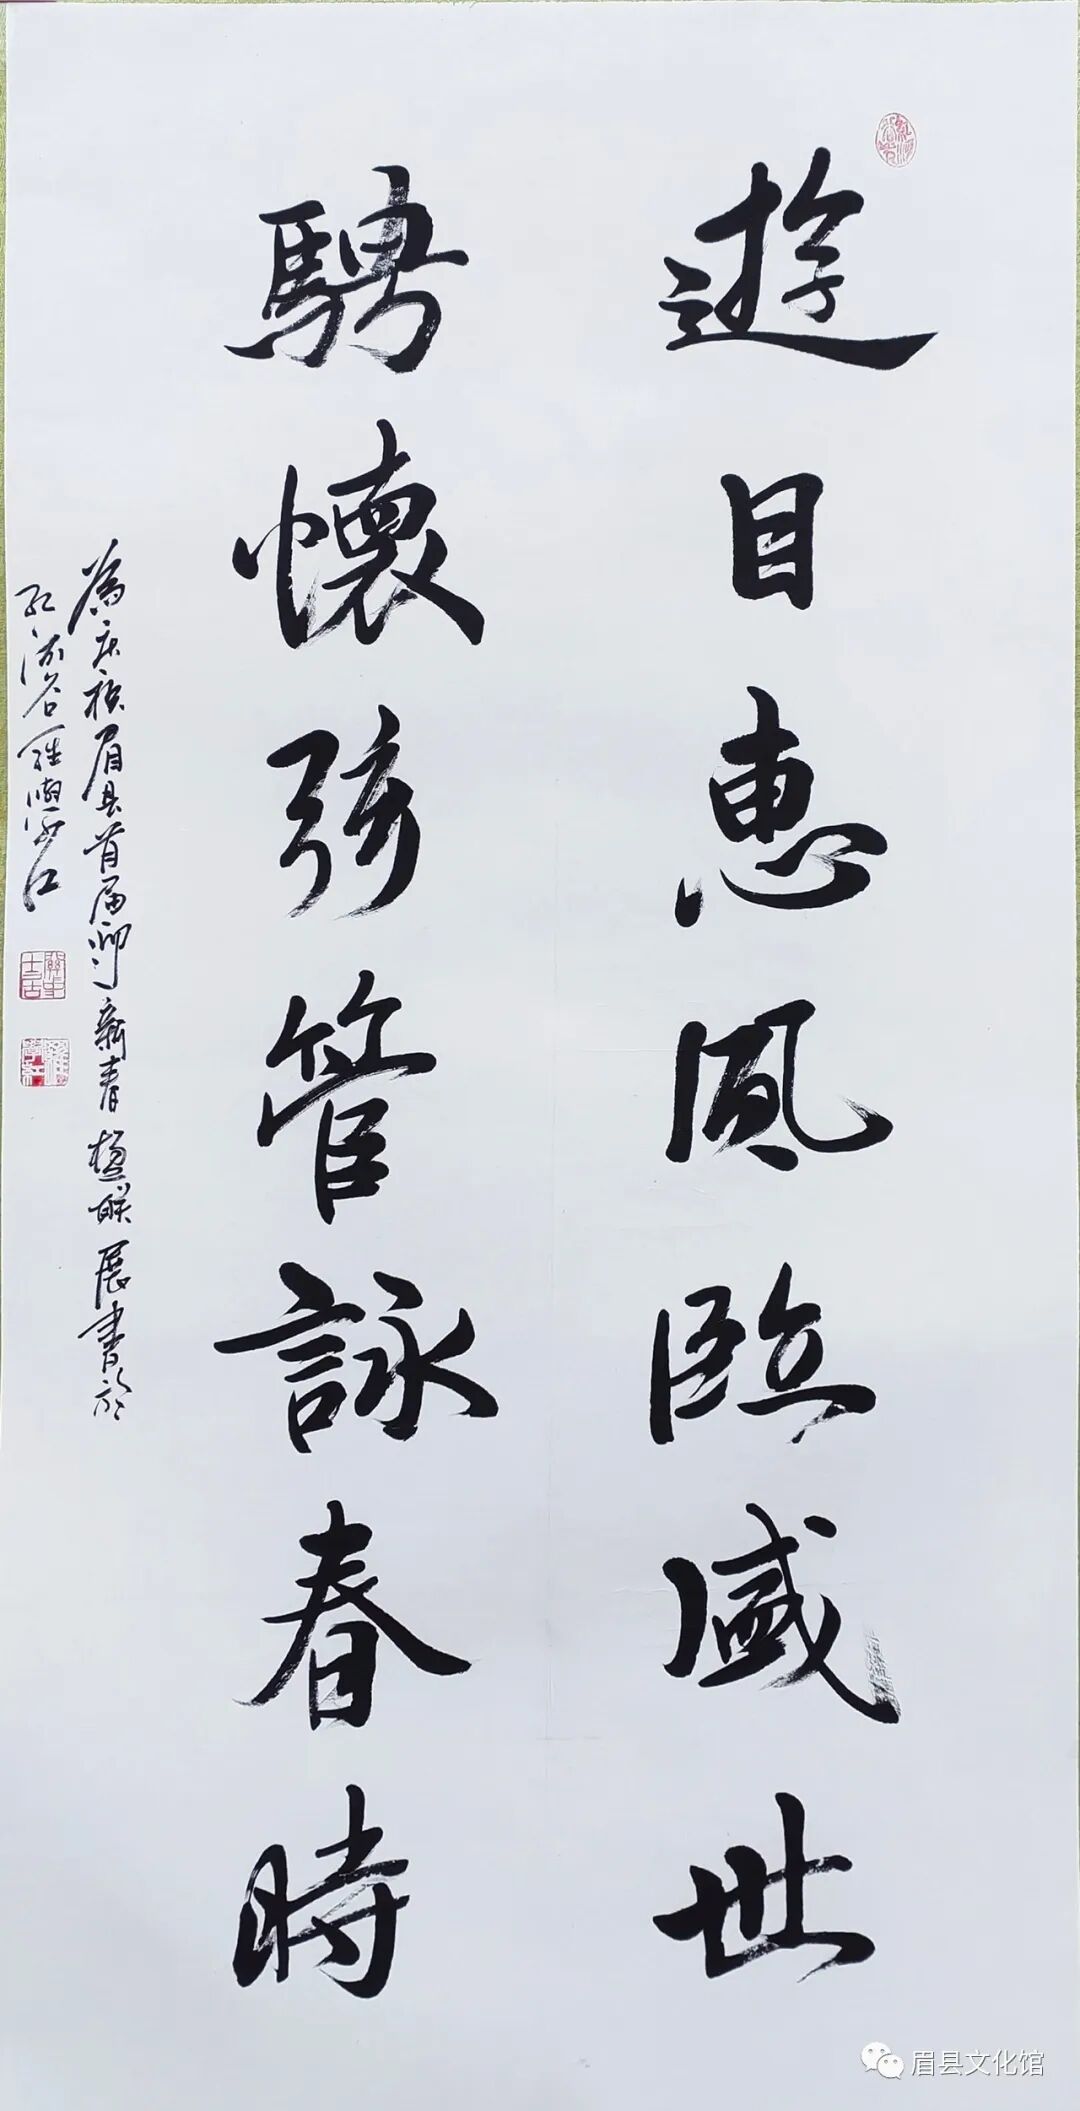 遊目惠風臨盛世
騁懷弦管詠春時
為庆祝眉县首届迎新春楹联展書於
紅河谷
眉县文化馆